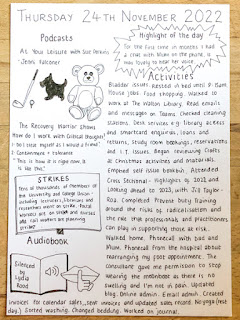 THURSDAY 24TH NOVEMBER 2022
Podcasts
As You Leisure with Sue Perkins
- Jenni Falconer
The Recovery Warrior Shows
How do I work with Critical Thoughts?
? Do I treat myself as I would a friend?
? Containment + tolerance
- This is how it is right now, it
is like this.
STRIKES
Tens of thousands of members of
the University and College Union -
including lecturers, librarians and
researchers went on strike. Postal
workers out on strike and nurses
and rail workers are planning
strikes
Audiobook
Silenced
by
Lydia
Rood
Highlight of the day
For the first time in months I had
a chat with Mum on the phone, it
was lovely to hear her voice
Activities
Bladder issues. Rested in bed until 9.15am
House jobs. Food shopping. Walked to
work at The Walton Library. Read emails
and messages on Teams. Checked staffing
rosters. Desk services e.g. library access
and smartcard enquiries, loans and
returns, study room bookings, reservations
and I.T. issues. Began reviewing Crafts
at Christmas activities and materials.
Emptied self issue bookbin. Attended
Crisis Sectional - Highlights of 2022 and
Looking ahead to 2023, with Jig Taylor-
Roo. Completed Prevent duty training
around the risks of radicalisation and
the role that professionals and practitioners
can play in supporting those at risk.
Walked home. Phonecall with Dad and
Mum. Phonecall from the hospital about
rearranging my post appointment. The
consultant gave me permission to stop
wearing the neckbrace as there is no
swelling and I'm not in pain. Updated
blog. Online admin. Email admin. Created
invoices for calendar sales, sent invoices and updated sales record. No yoga (rest
day). Sorted washing. Changed bedding. Worked on journal.